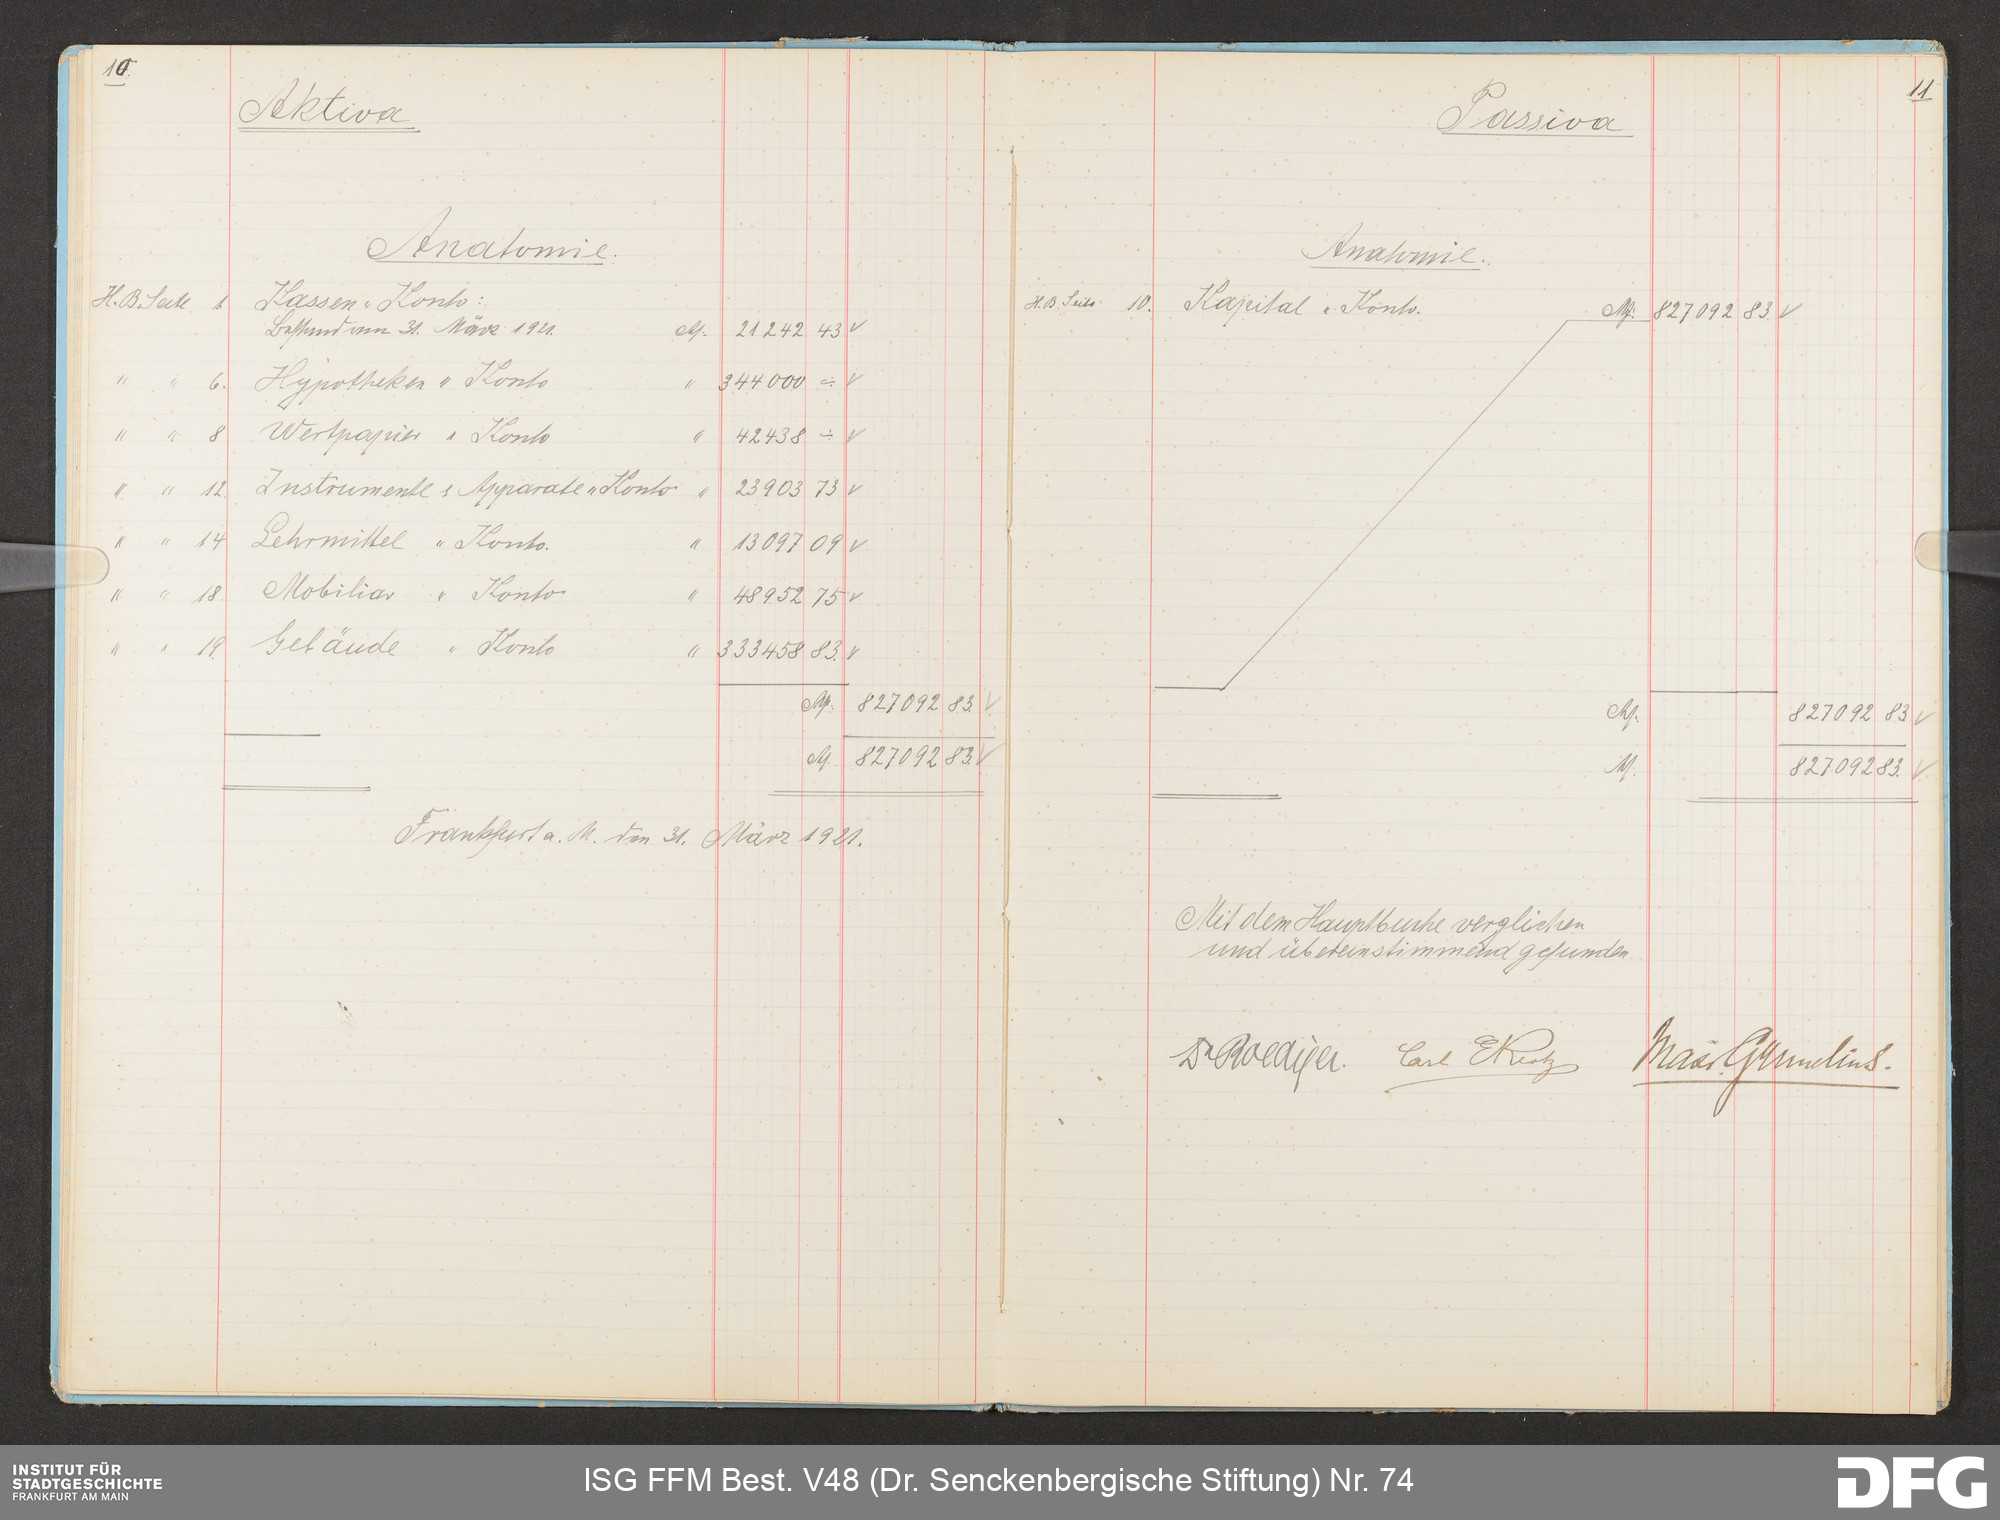 10.
Aktiva
Anatomie.
H. B. Seite 1 Kassen " Konto:
Bestand am 31. März 1921. M. 21242 43 ✓
" " 6. Hypotheken " Konto " 344000 ÷ ✓
" " 8 Wertpapier " Konto " 42438 ÷ ✓
" " 12. Instrumente & Apparate " Konto " 23903 73 ✓
" " 14 Lehrmittel " Konto. " 13097 09 ✓
" " 18. Mobiliar " Konto " 48952 75 ✓
" " 19. Gebäude " Konto " 333458 83. ✓
M. 827092 83. ✓
M. 827092 83. ✓
Frankfurt a. M. den 31. März 1921.
11
Passiva
Anatomie.
H. B. Seite 10. Kapital " Konto. M. 827092 83. ✓
M. 827092 83 ✓
M. 827092 83. ✓
Mit dem Hauptbuche verglichen
und übereinstimmend gefunden.
Dr Roediger. Carl
INSTITUT FÜR
STADTGESCHICHTE
FRANKFURT AM MAIN
ISG FFM Best. V48 (Dr. Senckenbergische Stiftung) Nr. 74
DFG